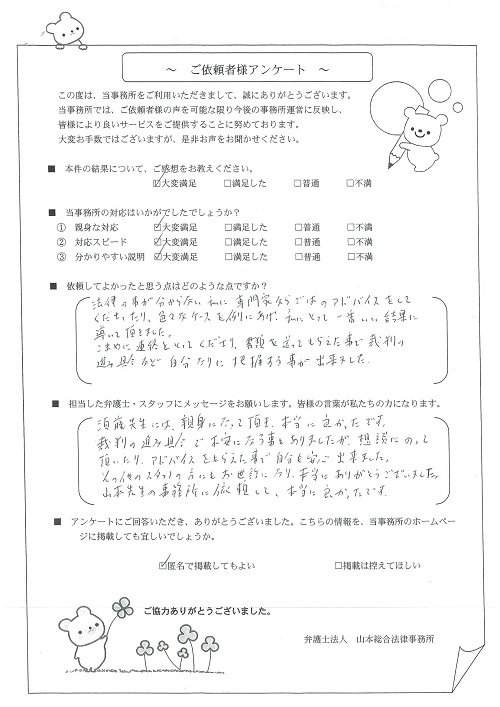 ~ ご依頼者様アンケート ~
この度は、当事務所をご利用いただきまして、誠にありがとうございます。
当事務所では、ご依頼者様の声を可能な限り今後の事務所運営に反映し、
皆様により良いサービスをご提供することに努めております。
大変お手数ではございますが、是非お声をお聞かせください。
■ 本件の結果について、ご感想をお教えください。
☑大変満足 □満足した □普通 □不満
■ 当事務所の対応はいかがでしたでしょうか?
① 親身な対応 ☑大変満足 □満足した □普通 □不満
② 対応スピード ☑大変満足 □満足した □普通 □不満
③ 分かりやすい説明 ☑大変満足 □満足した □普通 □不満
■ 依頼してよかったと思う点はどのような点ですか?
法律の事が分からない私に専門家ならではのアドバイスをして
くださったり、色々なケースを例にあげ、私にとって一番いい結果に
導いて頂きました。
こまめに連絡をとってくださり、書類を送ってもらえた事で裁判の
進み具合など自分なりに把握する事が出来ました。
■ 担当した弁護士・スタッフにメッセージをお願いします。皆様の言葉が私たちの力になります。
先生には、親身になって頂き、本当に良かったです。
裁判の進み具合で不安になる事もありましたが相談にのって
頂いたり、アドバイスをもらえた事で自分も安心出来ました。
その他のスタッフの方にもお世話になり、本当にありがとうございました。
山本先生の事務所に依頼して、本当に良かったです。
■ アンケートにご回答いただき、ありがとうございました。こちらの情報を、当事務所のホームペー
ジに掲載しても宜しいでしょうか。
☑匿名で掲載してもよい □掲載は控えてほしい
ご協力ありがとうございました。
弁護士法人 山本総合法律事務所